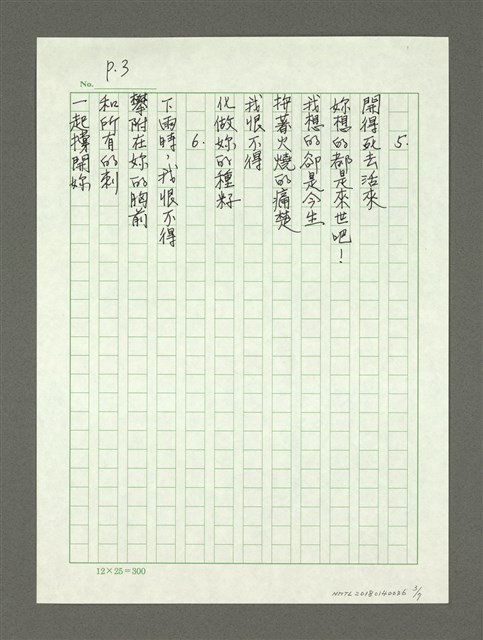 P.3
No.
5.
開得死去活來
妳想的都是來世吧！
我想的卻是今生
拚著火燒的痛楚
我恨不得
化做妳的種籽
6.
下雨時，我恨不得
攀附在妳的胸前
和所有的刺
一起撐開妳
12×25=300
NMTL20180140036 3/7